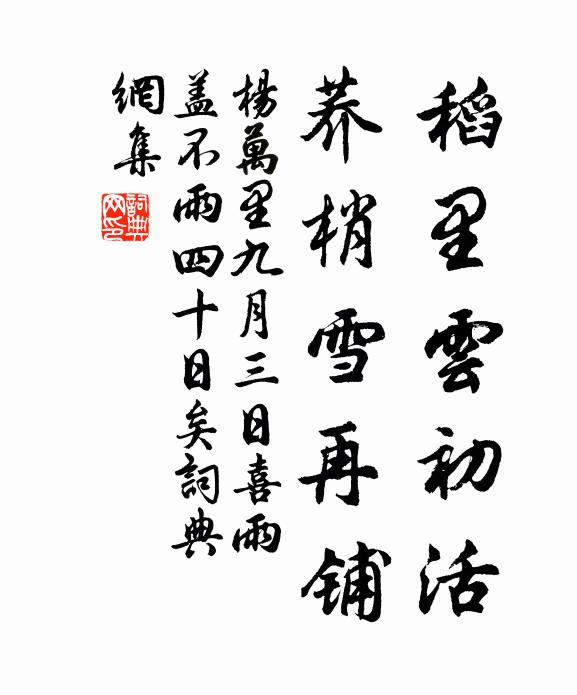 稻里雲初活
荞梢雪再铺
楊萬里九月三日喜雨
盖不雨四十日矣詞典
網集
詞典网印